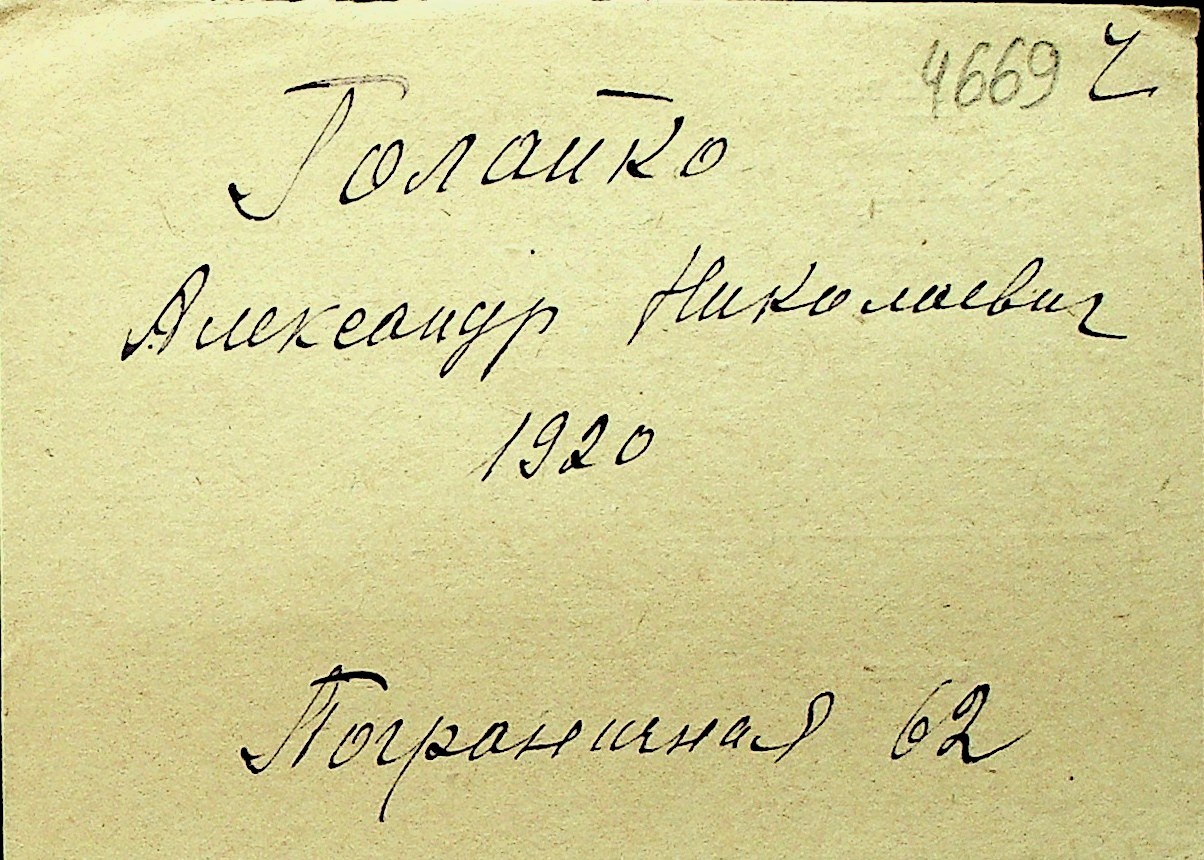 4669 Ч
Голайко
Александр Николаевич
1920
Пограничная 62